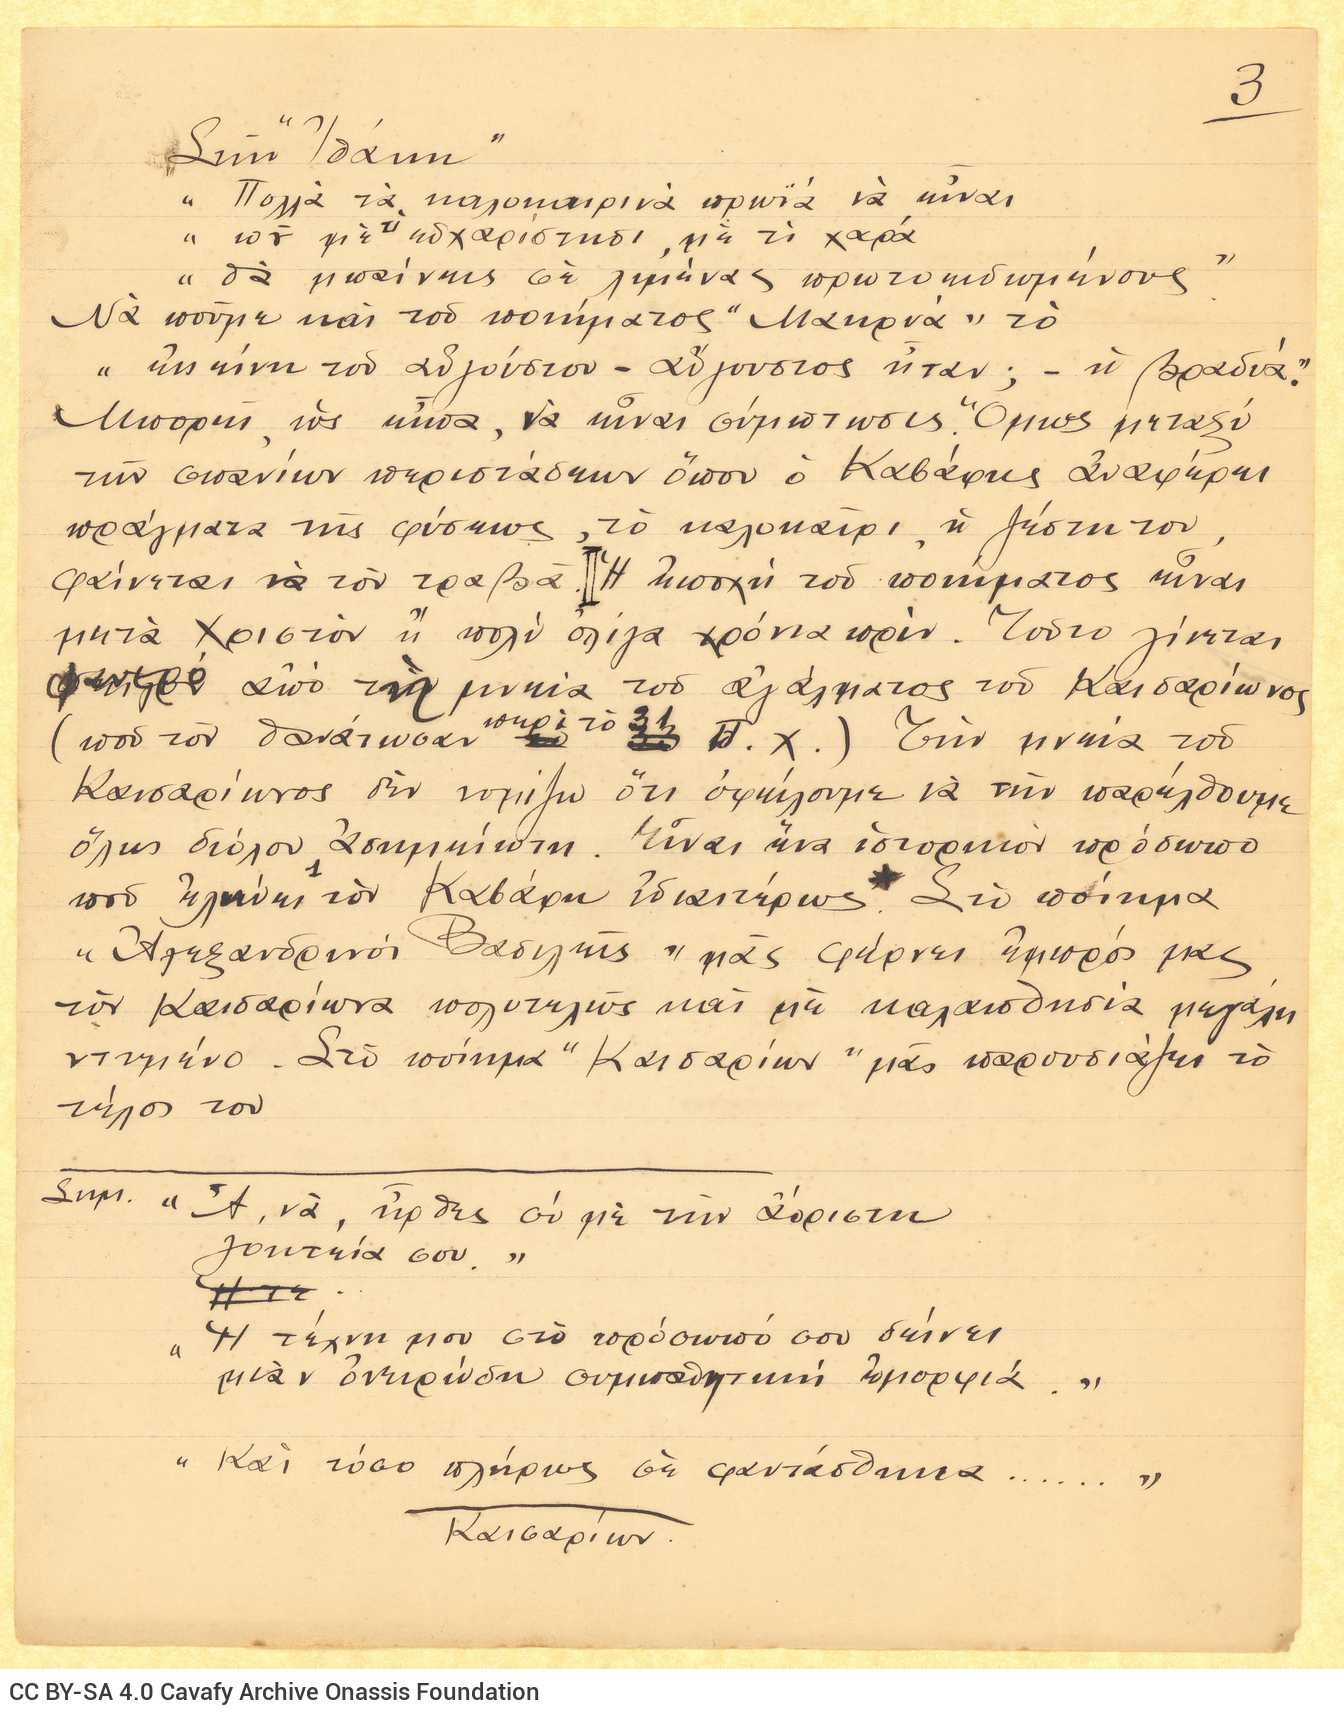 3
Στην "Ἰθάκη"
" Πολλὰ τὰ καλοκαιρινὰ πρωϊά νὰ εἶναι
" ποῦ μὲ τὶ εὐχαρίστησι, μὲ τὶ χαρά
" θὰ μπαίνεις σὲ λιμένας πρωτοειδωμένους"
Νὰ ποῦμε καὶ τοῦ ποιήματος "Μακρυά" τὸ
" ἐκείνη τοῦ αὐγούστου - αὔγουστος ἦταν; - ἡ βραδυά."
Μπορεῖ, ὡς εἶπα, νὰ εἶναι σύμπτωσις. Ὅμως μεταξύ
τῶν σπανίων περιστάσεων ὅπου ὁ Καβάφης ἀναφέρει
πράγματα τῆς φύσεως, τὸ καλοκαῖρι, ἡ ζέστη του,
φαίνεται νὰ τὸν τραβᾶ. Ἡ ἐποχή τοῦ ποιήματος εἶναι
μετὰ Χριστὸν ἢ πολὺ ὀλίγα χρόνια πρὶν. Τοῦτο γίνεται
φανερό ἀπὸ τὴ μνεία τοῦ ἀγάλματος τοῦ Καισαρίωνος
(ποῦ τὸν θανάτωσαν περὶ τὸ 31 π.χ.) Τὴν μνεία τοῦ
Καισαρίωνος δὲν νομίζω ὅτι ὀφείλουμε νὰ τὴν παρέλθουμε
ὅλως διόλου ἀσημείωτη. Εἶναι ἕνα ἱστορικὸν πρόσωπο
ποῦ ἑλκύει 1 τὸν Καβάφη ἰδιαιτέρως. Στὸ ποίημα
"Ἀλεξανδρινοὶ Βασιλεῖς" μᾶς φέρνει ἐμπρός μας
τὸν Καισαρίωνα πολυτελῶς καὶ μὲ καλαισθησία μεγάλη
ντυμένο. Στὸ ποίημα "Καισαρίων" μᾶς παρουσιάζει τὸ
τέλος του
Σημ. "Ἄ, νὰ, ἦρθες σύ μὲ τὴν ἀόριστη
γοητεία σου."
Ἡ τε
"Ἡ τέχνη μου στὸ πρόσωπό σου δείνει
μιὰν ὀνειρώδη συμπαθητική ἐμορφιά."
"Καὶ τόσο πλήρως σὲ φαντάσθηκα ......"
Καισαρίων.
CC BY-SA 4.0 Cavafy Archive Onassis Foundation